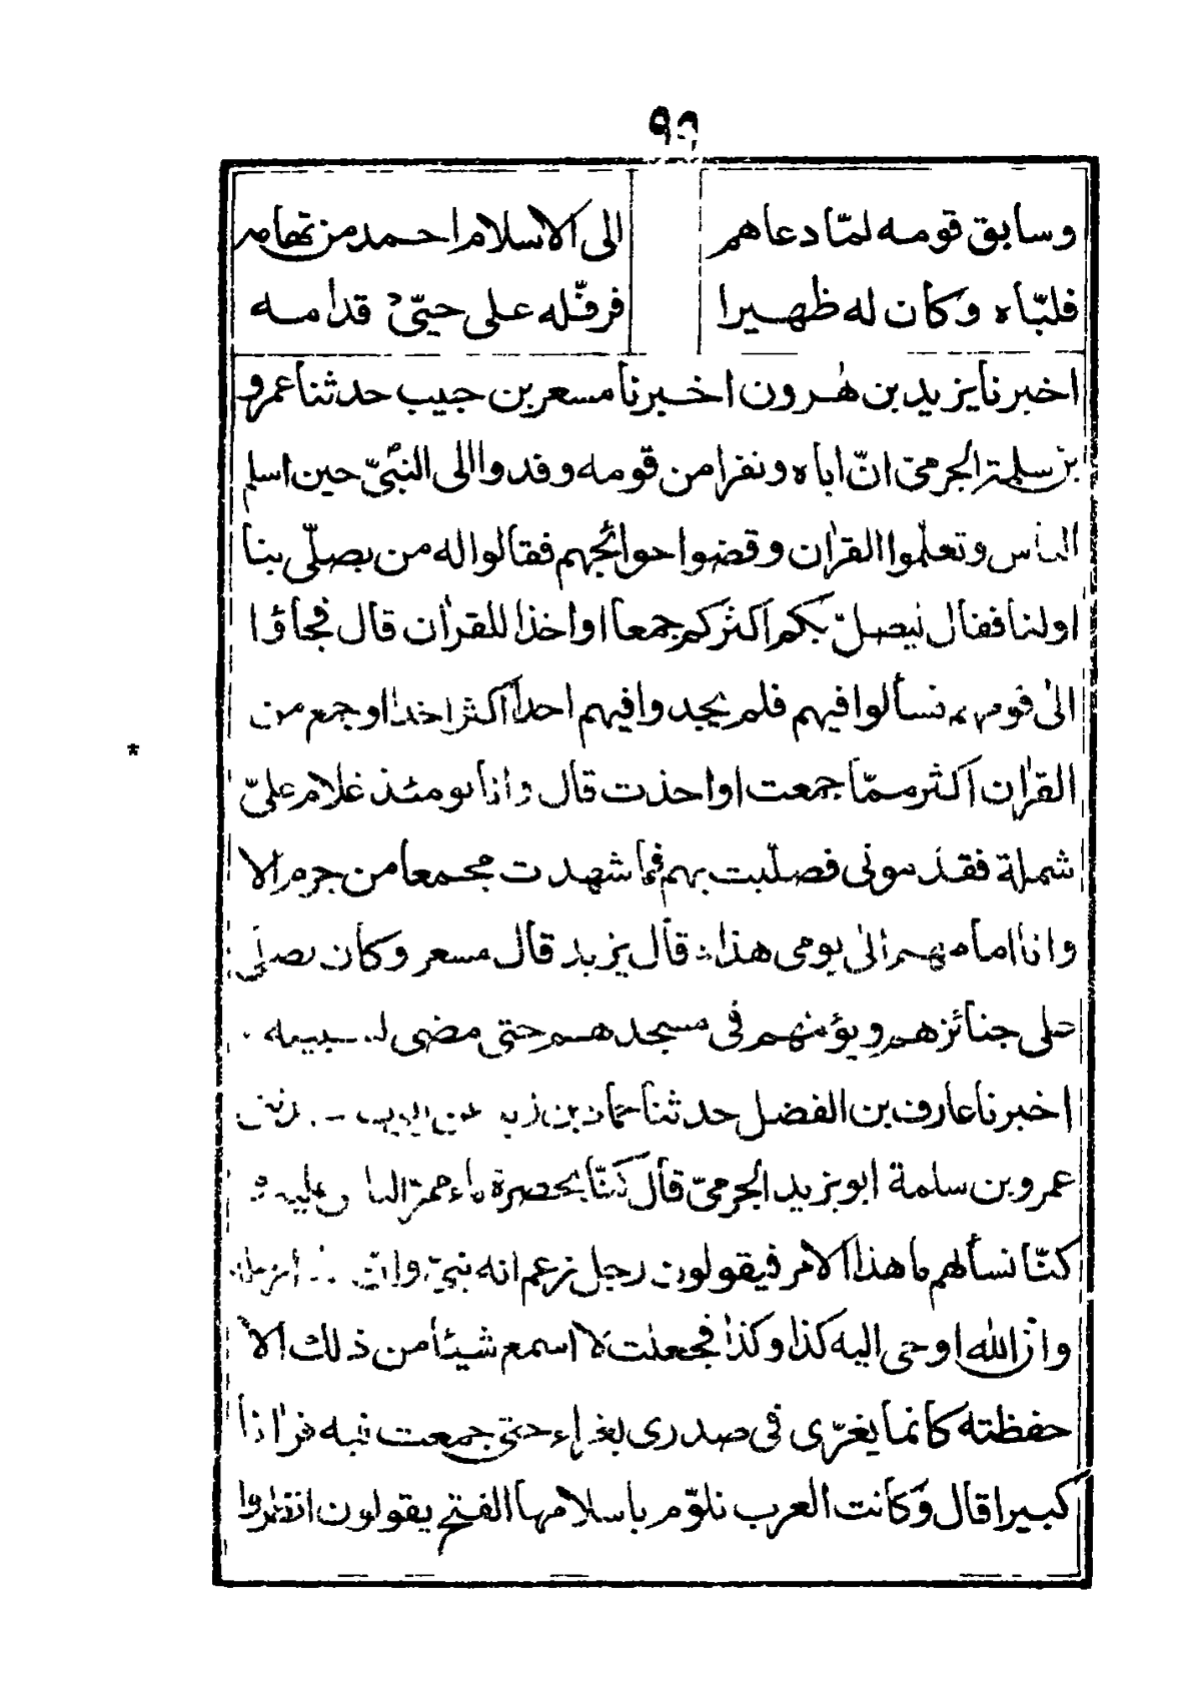 ٩٩
وسابق قومه لمّا دعاهم الى الاسلام احمد من تهامه
فلبّاه وكان له ظهيرا فرفّله على حيّى قدامه
اخبرنا يزيد بن هٰرون اخبرنا مسعر بن حبيب حدثنا عمرو
بن سلمة الجرمىّ انّ اباه ونفرا من قومه وفدوا الى النبىّ حين اسلم
الناس وتعلّموا القراٰن وقضوا حوائجهم فقالوا له من يصلّى بنا
او لنا فقال ليصلّ بكم اكثركم جمعا او اخذا للقراٰن قال فجاؤا
الىٰ قومهم فسألوا فيهم فلم يجدوا فيهم احدا اكثر اخذا او جمع من
القراٰن اكثر ممّا جمعت او اخذت قال وانا يومئذ غلام علىّ
شملة فقدمونى فصليت بهم فما شهدت مجمعا من جرم الا
وانا امامهم الىٰ يومى هذا قال يزيد قال مسعر وكان يصلى
على جنائزهم ويؤمّهم فى مسجدهم حتى مضى لسبيله
اخبرنا عارف بن الفضل حدثنا حماد بن زيد عن ايوب
عمرو بن سلمة ابو يزيد الجرمىّ قال كنّا بحضرة ماء ممرّ الناس عليه و
كنّا نسألهم ما هذا الامر فيقولون رجل زعم انه نبىّ وانّ
وانّ الله اوحى اليه كذا وكذا فجعلت لا اسمع شيئا من ذلك الا
حفظته كانما يغرّى فى صدرى بغراء حتى جمعت فيه قراٰنا
كبيرا قال وكانت العرب تلوّم باسلامها الفتح يقولون انظروا
*